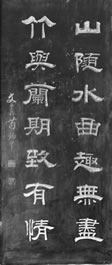 山陿水曲趣無盡
竹與蘭期致有情